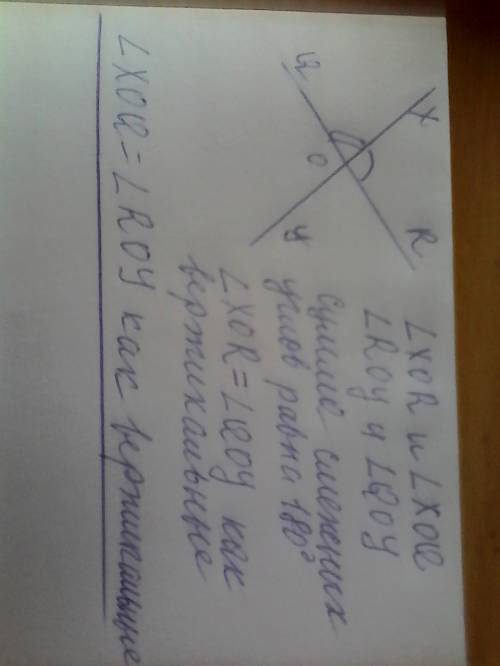 X
R
Q
O
Y
∠XOR и ∠XOQ
∠ROY и ∠QOY
сумма смежных
углов равна 180°
∠XOR = ∠QOY как
вертикальные
∠XOQ = ∠ROY как вертикальные